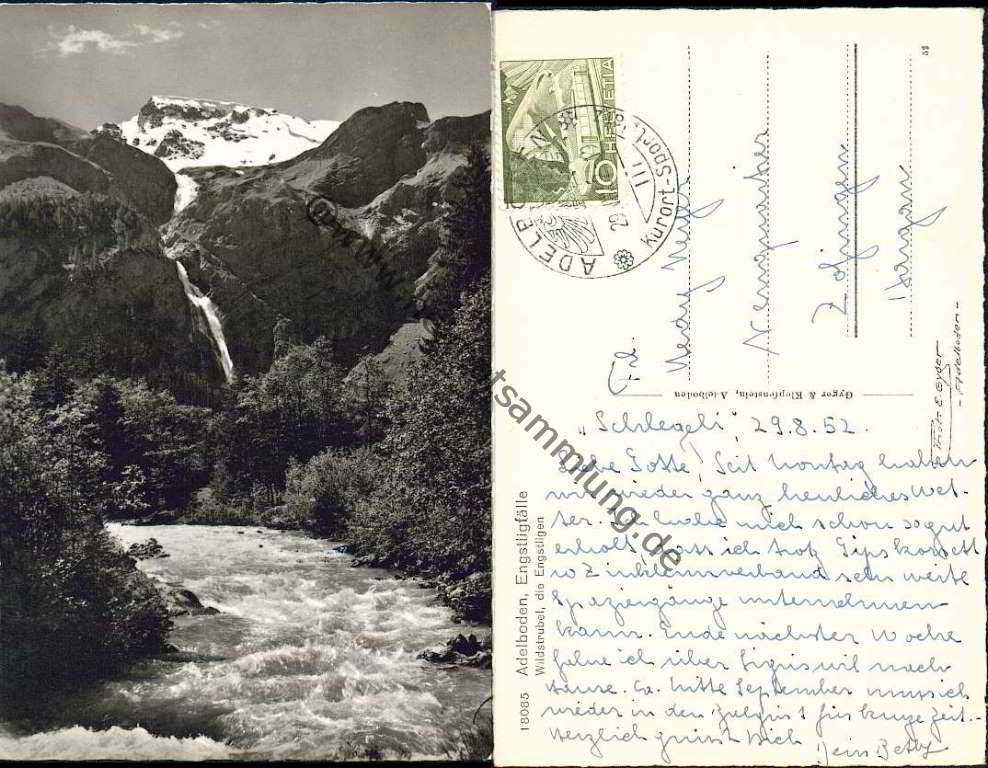 HELVETIA
10
ADELBODEN
29.
III
Kurort-Sport
Frl.
Zofingen
Gyger & Klopfenstein, Adelboden
- Adelboden -
52
18085 Adelboden, Engstligfälle
Wildstrubel, die Engstligen
"Schlegeli", 29.8.52.
Liebe Gotte! Seit Montag haben
wir wieder ganz herrliches Wet-
ter. Ich habe mich schon so gut
erholt, dass ich trotz Gipskorsett
u Zinkleimverband sehr weite
Spaziergänge unternehmen
kann. Ende nächster Woche
fahre ich über Sigriswil nach
Hause. Ca. Mitte September muss ich
wieder in den für kurze Zeit.
Herzlich grüsst Dich Dein Betly